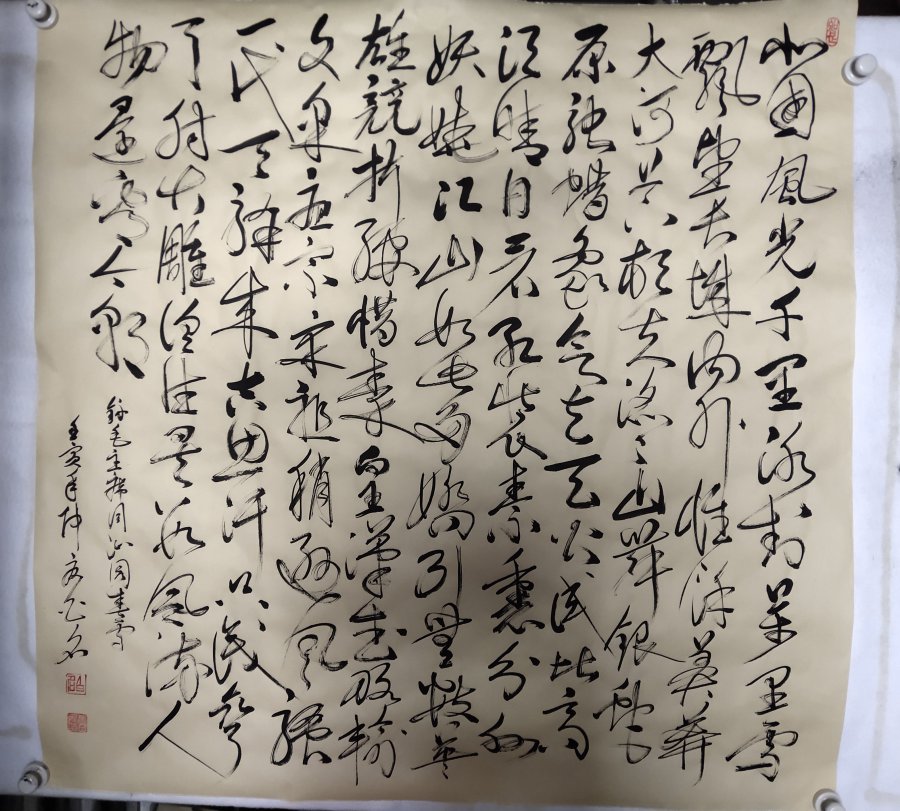 北国風光千里冰封万里雪
飄望长城内外惟馀莽莽
大河上下顿失滔滔山舞银蛇
原驰蜡象欲与天公试比高
须晴日看红装素裹分外
妖娆江山如此多娇引无数英
雄競折腰惜秦皇汉武略输
文采唐宗宋祖稍逊风骚
一代天骄成吉思汗只识弯
弓射大雕俱往矣数风流人
物還看今朝
毛主席词沁园春雪
壬寅年